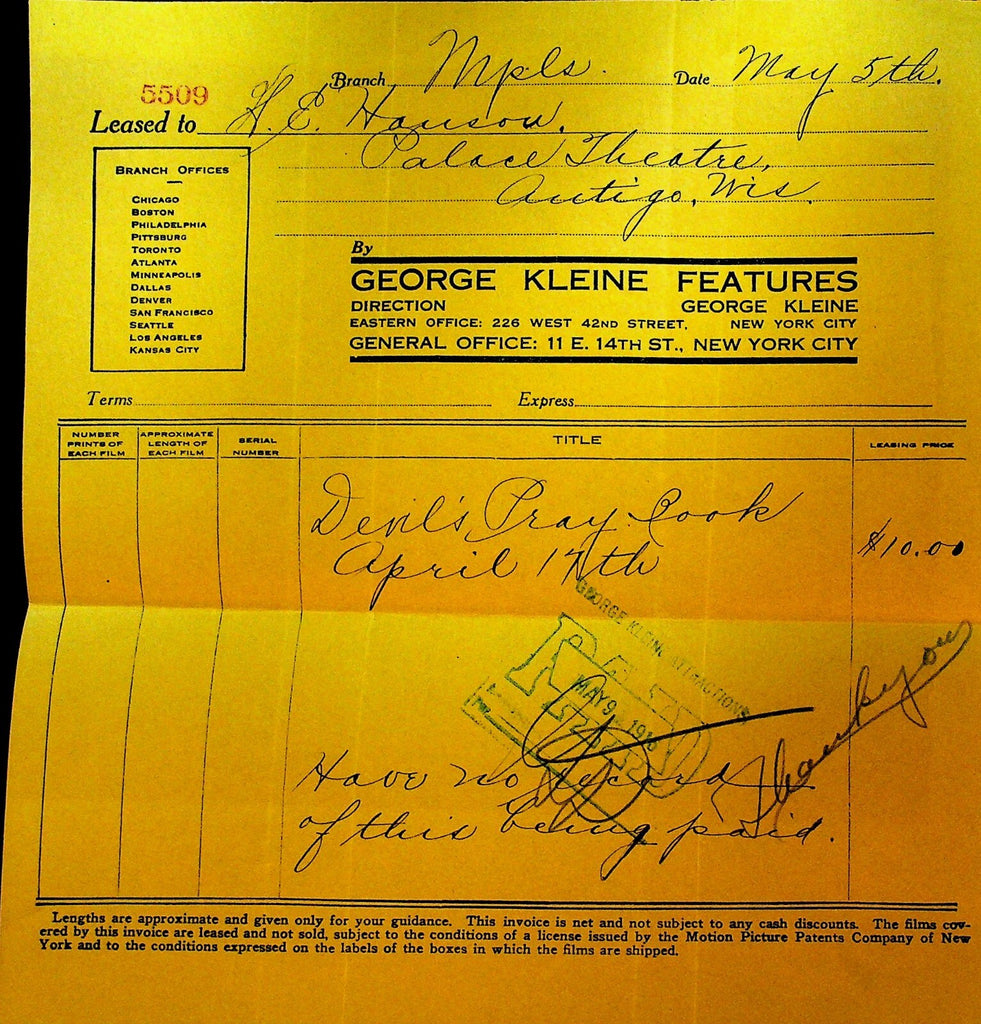 Branch Mpls. Date May 5th.
5509
Leased to H. E. Hanson.
Palace Theatre,
Antigo, Wis.
BRANCH OFFICES
CHICAGO
BOSTON
PHILADELPHIA
PITTSBURG
TORONTO
ATLANTA
MINNEAPOLIS
DALLAS
DENVER
SAN FRANCISCO
SEATTLE
LOS ANGELES
KANSAS CITY
By
GEORGE KLEINE FEATURES
DIRECTION GEORGE KLEINE
EASTERN OFFICE: 226 WEST 42ND STREET, NEW YORK CITY
GENERAL OFFICE: 11 E. 14TH ST., NEW YORK CITY
Terms Express
NUMBER PRINTS OF EACH FILM APPROXIMATE LENGTH OF EACH FILM SERIAL NUMBER TITLE LEASING PRICE
Devil's Pray. Cook
April 17th $10.00
GEORGE KLEINE ATTRACTIONS
PAID
MAY 9 1916
Thank you
Have no record
of this being paid.
Lengths are approximate and given only for your guidance. This invoice is net and not subject to any cash discounts. The films cov-
ered by this invoice are leased and not sold, subject to the conditions of a license issued by the Motion Picture Patents Company of New
York and to the conditions expressed on the labels of the boxes in which the films are shipped.